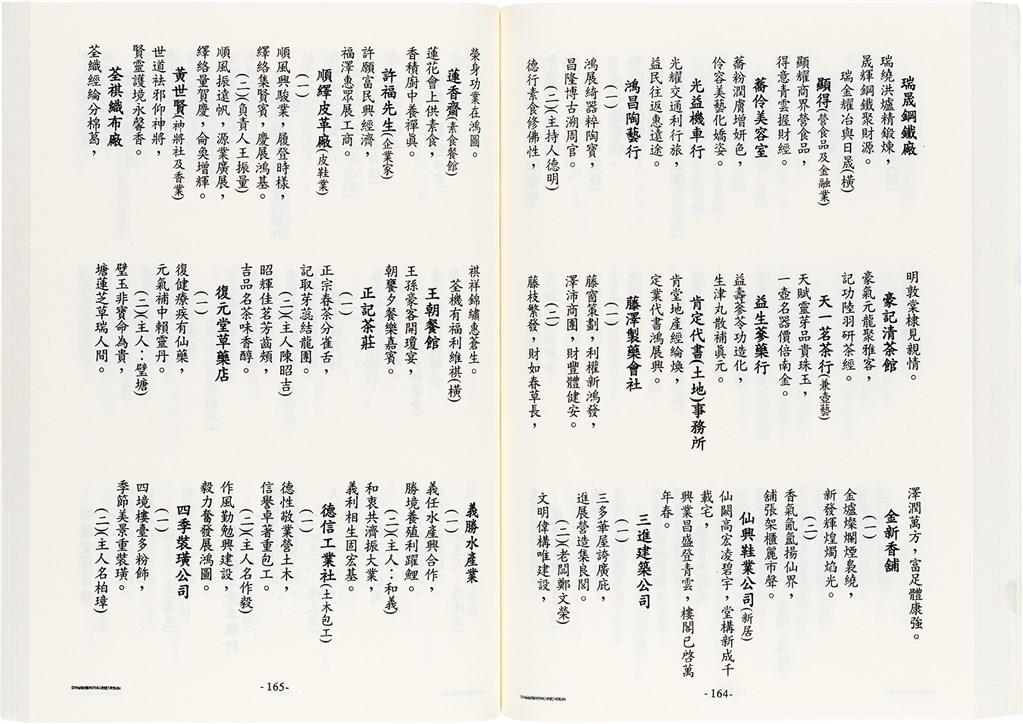 瑞晟鋼鐵廠
瑞繞洪墟精鍛煉，
晟輝鋼鐵聚財源。
瑞金耀冶與日晟(橫)
顯得(營食品及金融業)
顯耀商界營食品，
得意青雲握財經。
蕃伶美容室
蕃粉潤膚增妍色，
伶容美藝化嬌姿。
光益機車行
光耀交通利行旅，
益民往返惠遠途。
鴻昌陶藝行
(一)
鴻展綺器粹陶寶，
昌隆博古溯周官。
(二)(主持人德明)
德行素食修佛性，
明敦棠棣見親情。
豪記清茶館
豪氣元龍聚雅客，
記功陸羽研茶經。
天一茗茶行(兼壺藝)
天賦靈芽品貴珠玉，
一壺名器價倍南金。
益生蔘藥行
益壽蔘苓功造化，
生津丸散補眞元。
肯定代書(土地)事務所
肯堂地產經綸煥，
定業代書鴻展興。
藤澤製藥會社
(一)
藤窗策劃，利權新鴻發，
澤沛商團，財豐體健安。
(二)
藤枝繁發，財如春草長，
澤潤萬方，富足體康強。
金新香舖
(一)
金爐燦爛煙裊繞，
新發輝煌燭焰光。
(二)
香氣氤氳揚仙界，
舖張架櫃麗市聲。
仙興鞋業公司(新居)
仙闕高宏凌碧宇，堂構新成千
載宅，
興業昌盛登青雲，樓閣已啓萬
年春。
三進建築公司
(一)
三多華屋誇廣庇，
進展營造集良閎。
(二)(老闆鄭文榮)
文明偉構唯建設，
-164-
榮身功業在鴻圖。
蓮香齋(素食餐館)
蓮花會上供素食，
香積廚中養禪眞。
許福先生(企業家)
許願富民興經濟，
福澤惠眾展工商。
順繹皮革廠(皮鞋業)
(一)
順風興駿業，履登時樣，
繹絡集賢賓，慶展鴻基。
(二)(負責人王振量)
順風振遠帆，源業廣展，
繹絡量賀慶，侖奐增輝。
黃世賢(神將社及香業)
世道袪邪仰神將，
賢靈護境永馨香。
荃祺織布廠
荃織經綸分棉葛，
祺祥錦繡惠蒼生。
荃機有福利維祺(橫)
王朝餐館
王孫豪客開瓊宴，
朝饔夕餐樂嘉賓。
正記茶莊
(一)
正宗春茶分雀舌，
記取芽蕊結龍團。
(二)(主人陳昭吉)
昭輝佳茗芳齒頰，
吉品名茶味香醇。
復元堂草藥店
(一)
復健療疾有仙藥，
元氣補中賴靈丹。
(二)(主人：璧塘)
璧玉非寶命為貴，
塘蓮芝草瑞人間。
義勝水產業
(一)
義任水產興合作，
勝境養殖利躍鯉。
(二)(主人：和義)
和衷共濟振大業，
義利相生固宏基。
德信工業社(土木包工)
(一)
德性敬業營土木，
信譽卓著重包工。
(二)(主人名作毅)
作風勤勉興建設，
毅力奮發展鴻圖。
四季裝璜公司
(一)
四境樓臺多粉飾，
季節美景重裝璜。
(二)(主人名柏璋)
-165-